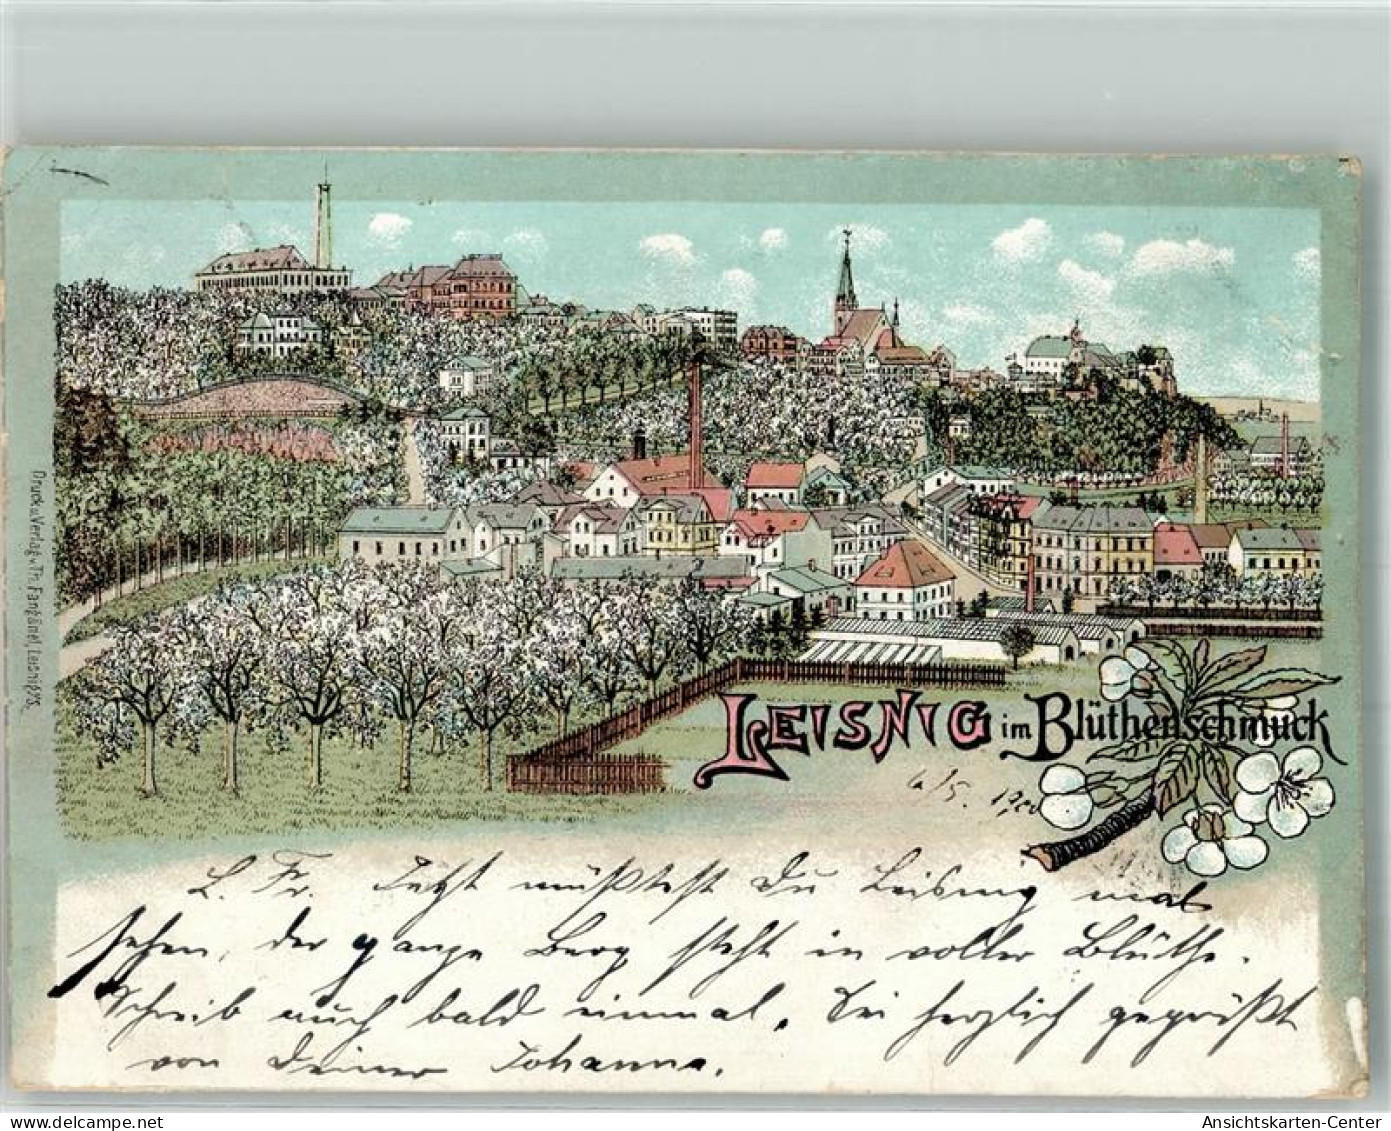 Druck u. Verlag v. Th. Fangänel, Leisnig i/S.
LEISNIG im Blüthenschmuck
4/5. 1900
L. Fr. Jetzt müßtest Du Leisnig mal
sehen, der ganze Berg steht in voller Blüthe.
Schreib auch bald einmal. Sei herzlich gegrüßt
von Deiner Johanna.
delcampe.net
Ansichtskarten-Center